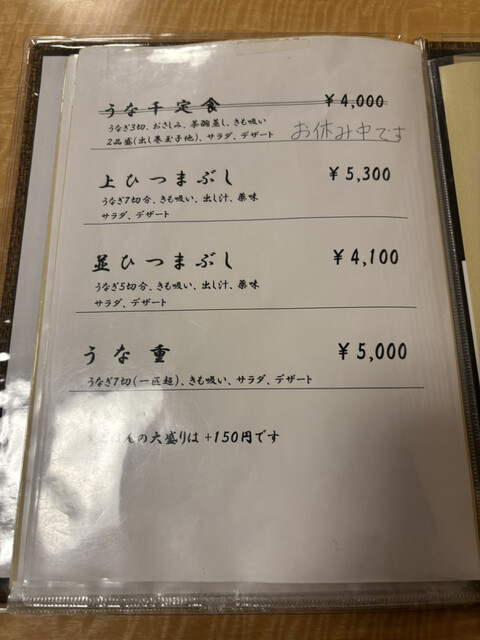 うな千定食 ¥4,000
うなぎ3切、おさしみ、茶碗蒸し、きも吸い
2品盛(出し巻玉子他)、サラダ、デザート
お休み中です
上ひつまぶし ¥5,300
うなぎ7切分、きも吸い、出し汁、薬味
サラダ、デザート
並ひつまぶし ¥4,100
うなぎ5切分、きも吸い、出し汁、薬味
サラダ、デザート
うな重 ¥5,000
うなぎ7切(一匹超)、きも吸い、サラダ、デザート
ごはんの大盛りは+150円です